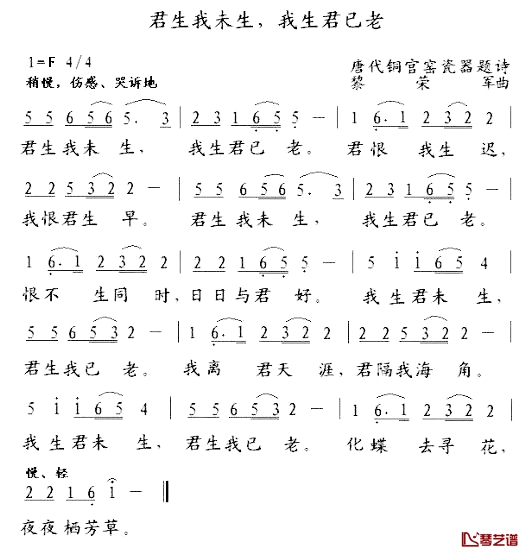 君生我未生，我生君已老
1=F 4/4
唐代铜官窑瓷器题诗
稍慢，伤感、哭诉地
黎荣军曲
5 5 6 5 6 5 5. 3 | 2 2 3 1 6 5 5 — | 1 6. 1 2 3 2 2 |
君生我未 生， 我生君已 老。 君恨 我生 迟，
2 2 5 3 2 2 — | 5 5 6 5 6 5 5. 3 | 2 2 3 1 6 5 5 — |
我恨君生 早。 君生我未 生， 我生君已 老。
1 6. 1 2 3 2 2 | 2 2 1 6 5 5 — | 5 i i 6 5 4 |
恨不 生同 时，日日与君 好。 我生君未 生，
5 5 6 5 3 2 — | 1 6. 1 2 3 2 2 | 5 5 6 5 3 2 — |
君生我已 老。 我离 君天 涯，君隔我海 角。
5 i i 6 5 4 | 5 5 6 5 3 2 — | 1 6. 1 2 3 2 2 |
我生君未 生， 君生我已 老。 化蝶 去寻 花，
慢、轻
2 2 1 6 i — ‖
夜夜栖芳草。
琴艺谱